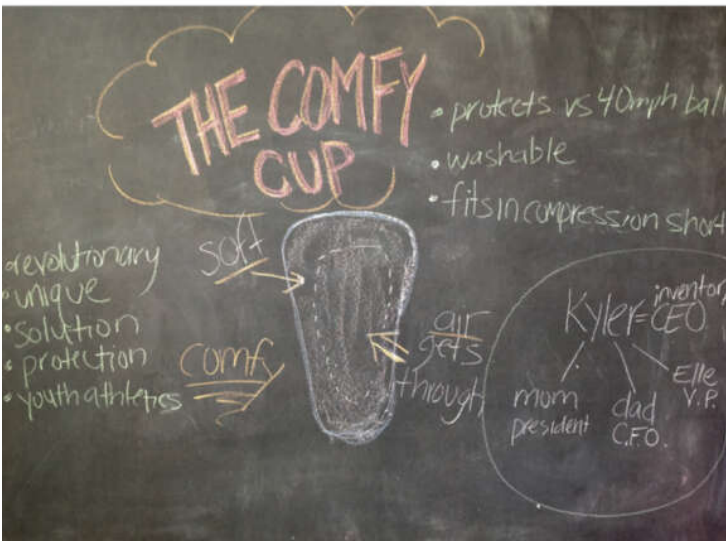 THE COMFY
CUP
• protects vs 40mph ball
• washable
• fits in compression short
• revolutionary
• unique
• solution
• protection
• youth athletics
soft
comfy
air
gets
through
inventor
Kyler=CEO
mom
president
dad
C.F.O.
Elle
V.P.